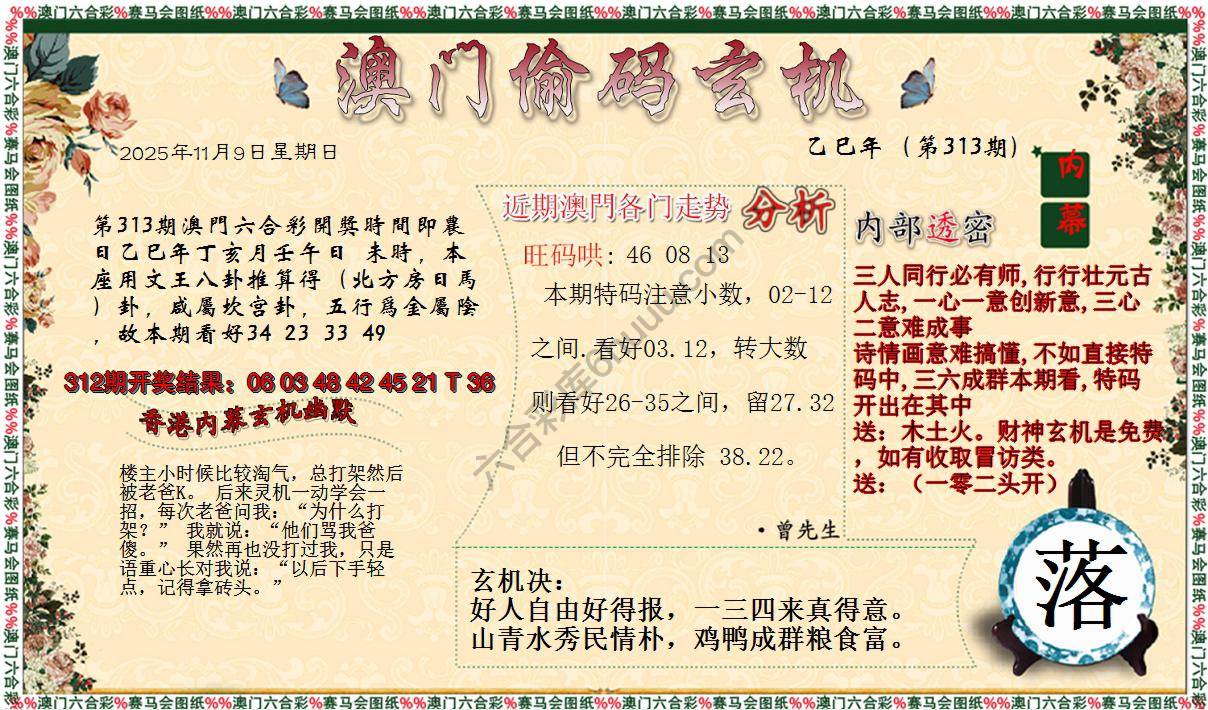 %%澳门六合彩%赛马会图纸%%澳门六合彩%赛马会图纸%%澳门六合彩%赛马会图纸%%澳门六合彩%赛马会图纸%%澳门六合彩%赛马会图纸%%澳门六合彩%赛马会图纸%%
澳门偷码玄机
2025年11月9日星期日
乙巳年（第313期）
内幕
第313期澳門六合彩開獎時間即農
日乙巳年丁亥月壬午日 未時，本
座用文王八卦推算得（北方房日馬
）卦，咸屬坎宫卦，五行爲金屬陰
，故本期看好34 23 33 49
312期开奖结果：06 03 48 42 45 21 T 36
香港内幕玄机幽默
楼主小时候比较淘气，总打架然后
被老爸K。 后来灵机一动学会一
招，每次老爸问我：“为什么打
架？” 我就说：“他们骂我爸
傻。” 果然再也没打过我，只是
语重心长对我说：“以后下手轻
点，记得拿砖头。”
近期澳門各门走势 分析
旺码哄: 46 08 13
本期特码注意小数，02-12
之间.看好03.12，转大数
则看好26-35之间，留27.32
但不完全排除 38.22。
·曾先生
内部透密
三人同行必有师,行行壮元古
人志,一心一意创新意,三心
二意难成事
诗情画意难搞懂,不如直接特
码中,三六成群本期看,特码
开出在其中
送：木土火。财神玄机是免费
，如有收取冒访类。
送：（一零二头开）
玄机决：
好人自由好得报，一三四来真得意。
山青水秀民情朴，鸡鸭成群粮食富。
落